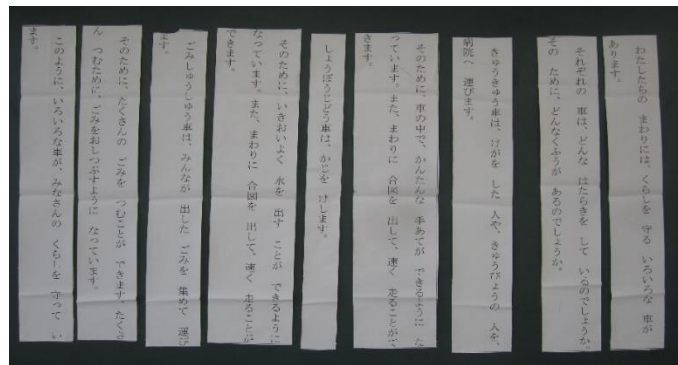 わたしたちの まわりには、くらしを 守る いろいろな 車が
あります。
それぞれの 車は、どんな はたらきを して いるのでしょうか。
その ために、どんなくふうが あるのでしょうか。
きゅうきゅう車は、けがを した 人や、きゅうびょうの 人を、
病院へ 運びます。
そのために、車の中で、かんたんな 手あてが できるように な
っています。また、まわりに 合図を 出して、速く 走ることがで
きます。
しょうぼうじどう車は、かじを けします。
そのために、いきおいよく 水を 出す ことが できるように
なっています。また、まわりに 合図を 出して、速く 走ることが
できます。
ごみしゅうしゅう車は、みんなが 出した ごみを 集めて 運び
ます。
そのために、たくさんの ごみを つむことが できます。たくさ
ん つむために、ごみをおしつぶすように なっています。
このように、いろいろな車が、みなさんの くらしを 守って い
ます。